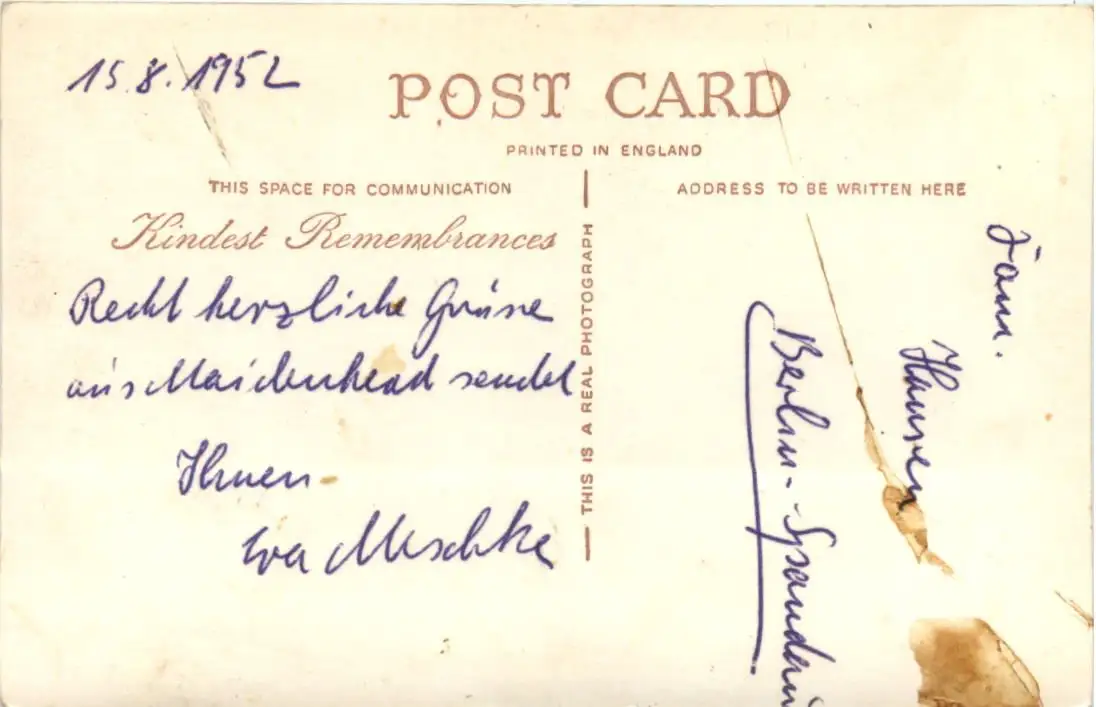 15.8.1952
POST CARD
PRINTED IN ENGLAND
THIS SPACE FOR COMMUNICATION
Kindest Remembrances
Recht herzliche Grüsse
aus Maidenhead sendet
Ihnen
Eva Meschke
THIS IS A REAL PHOTOGRAPH
ADDRESS TO BE WRITTEN HERE
Fam.
Hansen
Berlin-Spandau